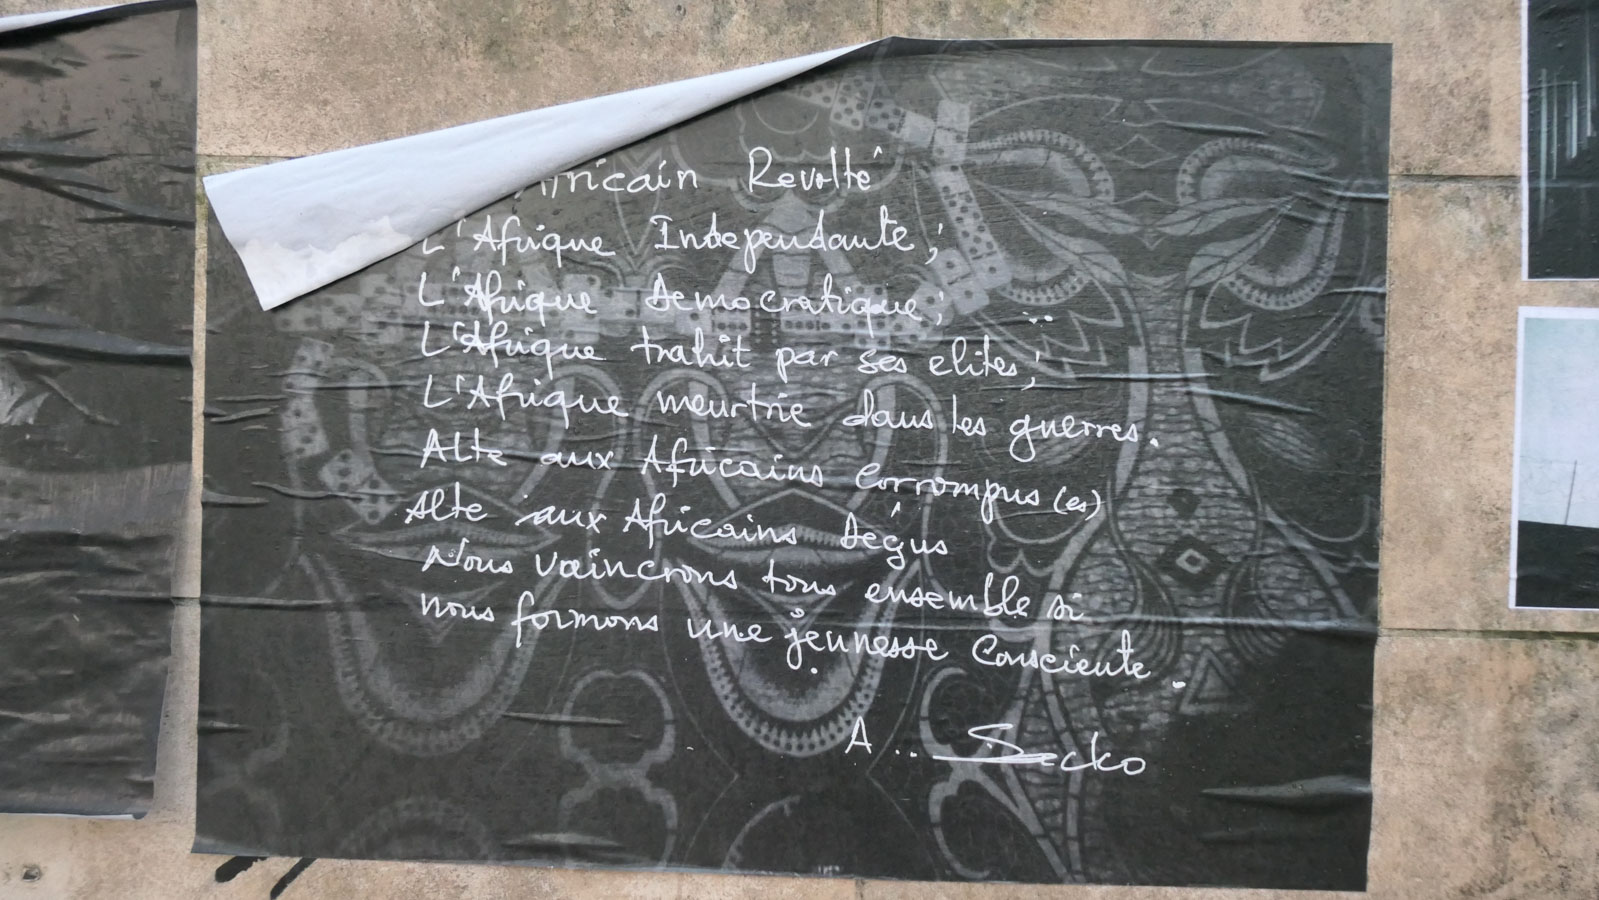 Africain Revolté
L'Afrique Independante;
L'Afrique Democratique;
L'Afrique trahit par ses elites;
L'Afrique meurtrie dans les guerres.
Alte aux Africains Corrompus (es)
Alte aux Africains Dégus
Nous vaincrons tous ensemble si
nous formons une jeunesse Consciente.
A.. Secko